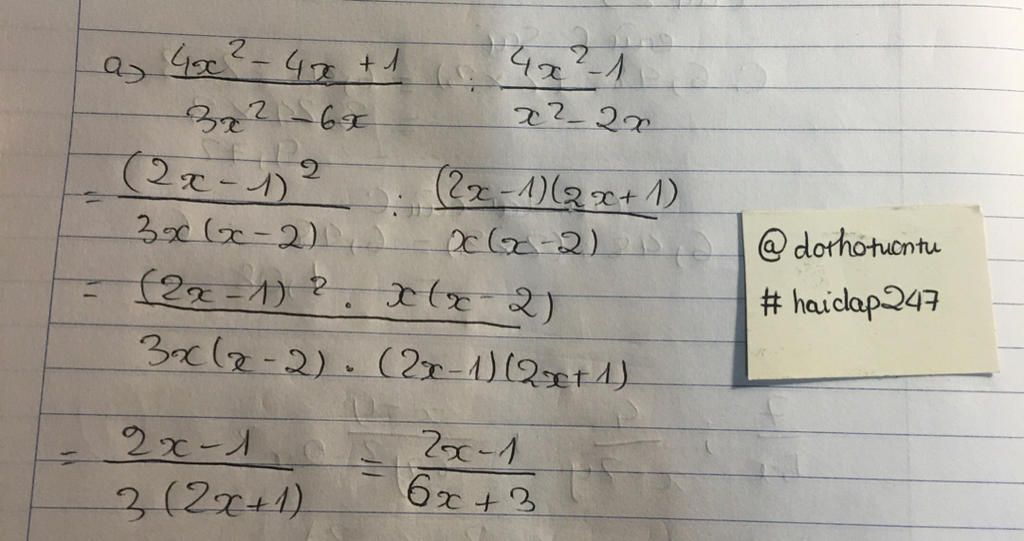 a) (4x² - 4x + 1)/(3x² - 6x) : (4x² - 1)/(x² - 2x)
= (2x - 1)²/(3x(x - 2)) : ((2x - 1)(2x + 1))/(x(x - 2))
= ((2x - 1)² . x(x - 2))/(3x(x - 2) . (2x - 1)(2x + 1))
= (2x - 1)/(3(2x + 1)) = (2x - 1)/(6x + 3)
@dothotucntu
#haidap247